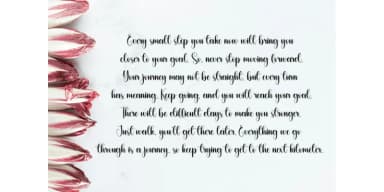 Every small step you take now will bring you
closer to your goal. So, never stop moving forward.
Your journey may not be straight, but every turn
has meaning. Keep going, and you will reach your goal.
There will be difficult days to make you stronger.
Just walk, you'll get there later. Everything we go
through is a journey, so keep trying to get to the next kilometer.